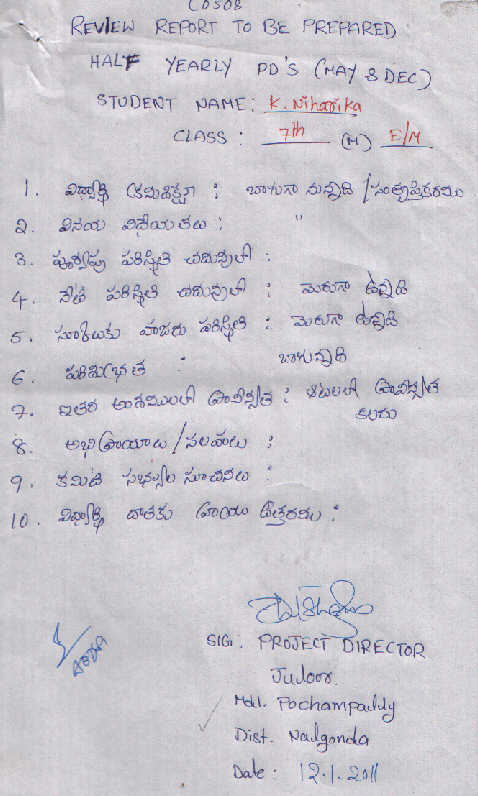 CDSOB
REVIEW REPORT TO BE PREPARED
HALF YEARLY PD'S (MAY & DEC)
STUDENT NAME: K. Niharika
CLASS : 7th (M) E/M
1. విద్యార్థి క్రమశిక్షణ : బాగుగా నున్నది / సంతృప్తికరము
2. వినయ విధేయతలు : "
3. పూర్వపు పరిస్థితి చదువులో :
4. నేటి పరిస్థితి చదువులో : మెరుగా ఉన్నది
5. స్కూలుకు హాజరు పరిస్థితి : మెరుగా ఉన్నది
6. పరిశుభ్రత : బాగున్నది
7. ఇతర అంశములలో ప్రావీణ్యత : ఆటలలో ప్రావీణ్యత
కలదు
8. అభిప్రాయాలు / సలహాలు :
9. కమిటి సభ్యుల సూచనలు :
10. విద్యార్థి దాతకు వ్రాయు ఉత్తరము :
SIG: PROJECT DIRECTOR
Juloor.
Mdl. Pochampally
Dist. Nalgonda
Date : 12.1.2011